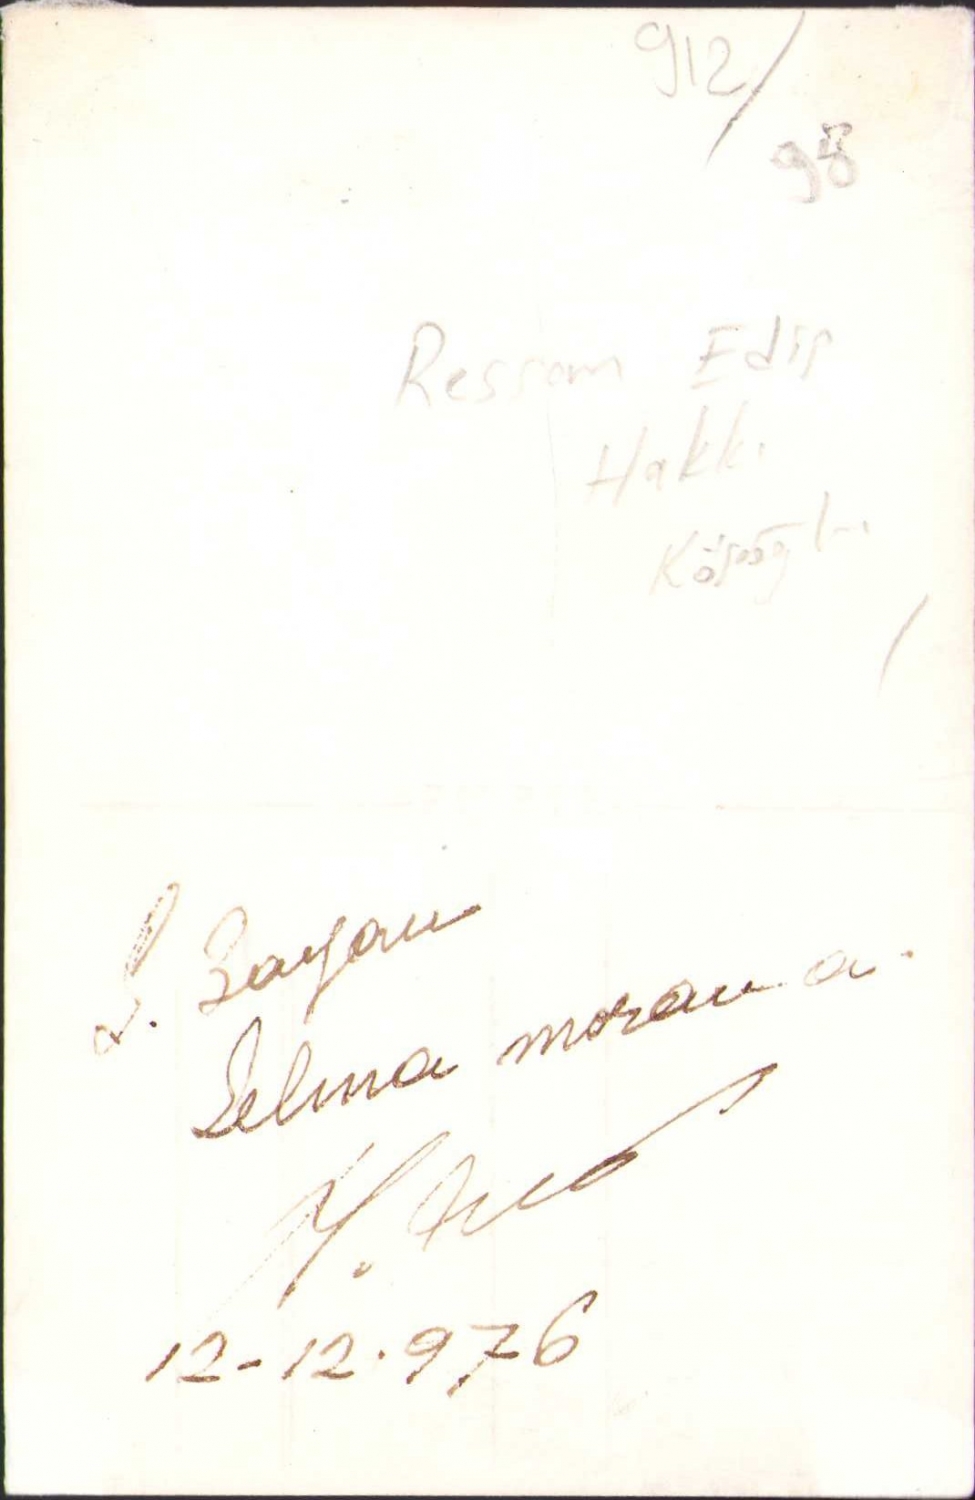 912/
98
Ressam Edip
Hakkı
Köseoğlu
S. Bayan
Selma moran a.
12-12.976